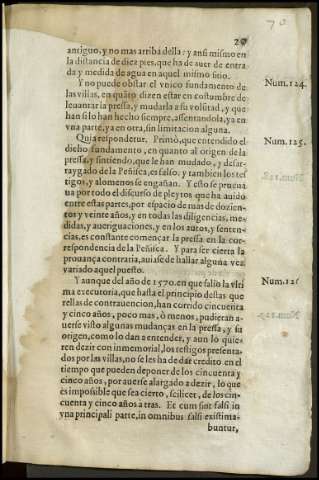 70
29
antiguo, y no mas arriba della: y ansi mismo en
la distancia de diez pies, que ha de auer de entra
da y medida de agua en aquel mismo sitio.
Y no puede obstar el vnico fundamento de
las villas, en quãto dizen estar en costumbre de
leuantar la pressa, y mudarla a su volũtad, y que
han sē lo han hecho siempre, assentandola, ya en
vna parte, ya en otra, sin limitacion alguna.
Num. 124.
Quia respondetur. Primò, que entendido el
dicho fundamento, en quanto al origen de la
pressa, y sintiendo, que le han mudado, y desar-
raygado de la Peñisca, es falso, y tambien los tes
tigos, y alomenos se engañan. Y esto se prueua
ua por todo el discurso de pleytos que ha auido
entre estas partes, por espacio de mas de dozien-
tos y veinte años, y en todas las diligencias, me-
didas, y aueriguaciones, y en los autos, y senten-
cias, es constante començar la pressa en la cor-
respondencia de la Peñisca. Y para ser cierta la
prouança contraria, auia se de hallar alguna vez
variado aquel puesto.
Num. 125.
Y aunque del año de 1570. en que salio la vlti
ma executoria, que hasta el principio destas que
rellas de contrauencion, han corrido cincuenta
y cinco años, poco mas, ò menos, pudieran a-
uerse visto algunas mudanças en la pressa, y su
origen, como lo dan a entender, y aun lo quie-
ren dezir con inmemorial, los testigos presenta-
dos por las villas, no se les ha de dar credito en el
tiempo que pueden deponer de los cincuenta y
cinco años, por auerse alargado a dezir, lo que
es impossible que sea cierto, scilicet, de los cin-
cuenta y cinco años a tras. Et cum sint falsi in
vna principali parte, in omnibus falsi existima-
buntur,
Num. 126